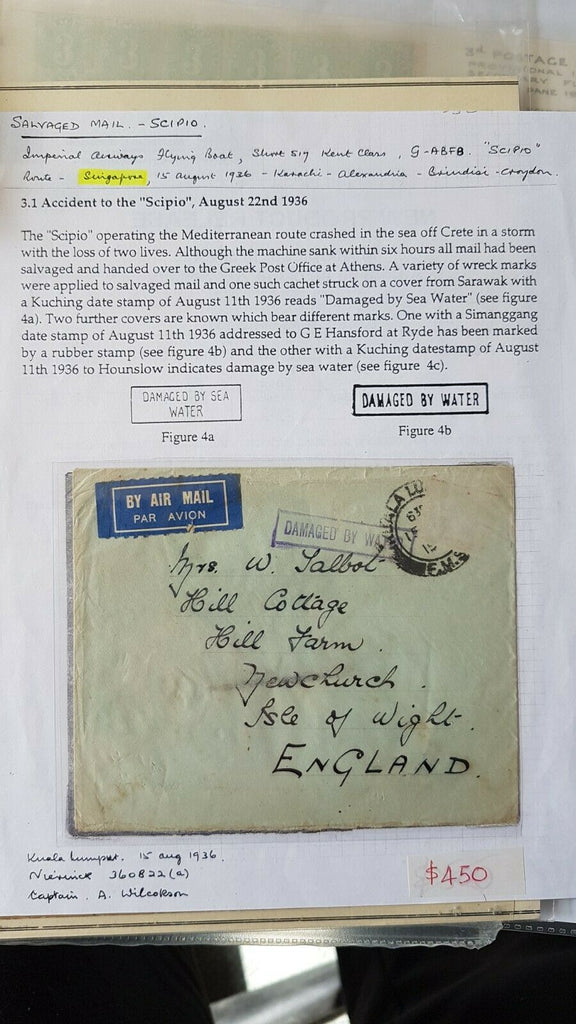 3d POSTAGE
SALVAGED MAIL. - SCIPIO.
Imperial Airways Flying Boat, Short S17 Kent Class, G-ABFB. "SCIPIO"
Route - Singapore, 15 August 1936 - Karachi - Alexandria - Brindisi - Croydon.
3.1 Accident to the "Scipio", August 22nd 1936
The "Scipio" operating the Mediterranean route crashed in the sea off Crete in a storm
with the loss of two lives. Although the machine sank within six hours all mail had been
salvaged and handed over to the Greek Post Office at Athens. A variety of wreck marks
were applied to salvaged mail and one such cachet struck on a cover from Sarawak with
a Kuching date stamp of August 11th 1936 reads "Damaged by Sea Water" (see figure
4a). Two further covers are known which bear different marks. One with a Simanggang
date stamp of August 11th 1936 addressed to G E Hansford at Ryde has been marked
by a rubber stamp (see figure 4b) and the other with a Kuching datestamp of August
11th 1936 to Hounslow indicates damage by sea water (see figure 4c).
DAMAGED BY SEA
WATER
Figure 4a
DAMAGED BY WATER
Figure 4b
BY AIR MAIL
PAR AVION
DAMAGED BY WA
F.M.S
Mrs. W. Talbot
Hill Cottage
Hill Farm.
Newchurch.
Isle of Wight.
ENGLAND.
Kuala Lumpur. 15 Aug 1936.
Nierinck 360822(a)
Captain. A. Wilcokson
$450